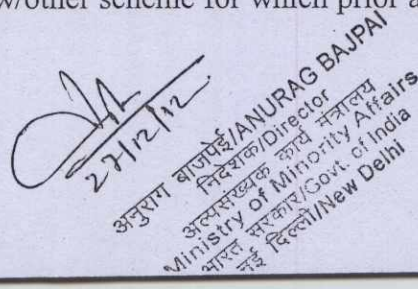 w/other scheme for which prior a
27/12/12
अनुराग बाजपेई/ANURAG BAJPAI
निदेशक/Director
अल्पसंख्यक कार्य मंत्रालय
Ministry of Minority Affairs
भारत सरकार/Govt. of India
नई दिल्ली/New Delhi